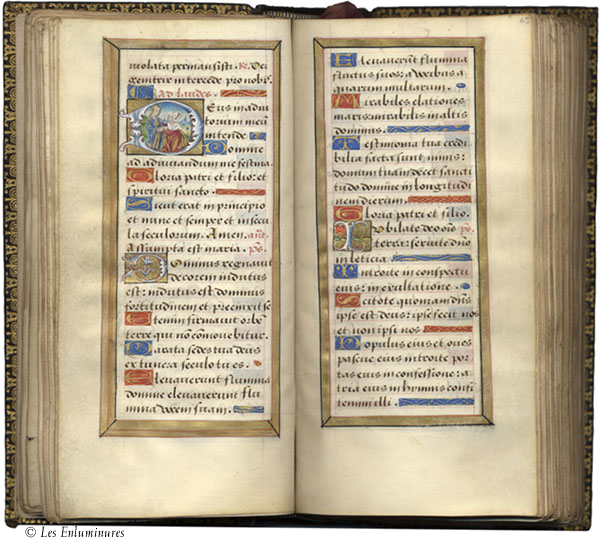 uiolata permansisti. R. Dei
genitrix intercede pro nobis.
Ad laudes.
Deus in adiu
torium meū
intende. Domine
ad adiuuandum me festina.
Gloria patri et filio: et
spiritui sancto.
Sicut erat in principio
et nunc et semper et in secu
la seculorum. Amen. añ.
Assumpta est maria. ps.
Dominus regnauit
decorem indutus
est: indutus est dominus
fortitudinem et precinxit se.
Etenim firmauit orbē
terre qui nō cōmouebitur.
Parata sedes tua deus
ex tunc a seculo tu es.
Eleuauerunt flumina
domine eleuauerunt flu
mina vocem suam.
Eleuauerunt flumina
fluctus suos: a vocibus a
quarum multarum.
Mirabiles elationes
maris: mirabilis in altis
dominus.
Testimonia tua credi
bilia facta sunt nimis:
domum tuam decet sancti
tudo domine in longitudi
nem dierum.
Gloria patri et filio.
Iubilate deo ōis ps.
terra: seruite dño
in leticia.
Introite in conspectu
eius: in exultatione.
Scitote quoniam dñs
ipse est deus: ipse fecit nos
et non ipsi nos.
Populus eius et oues
pascue eius introite por
tas eius in confessione: a
tria eius in hymnis confi
temini illi.
© Les Enluminures